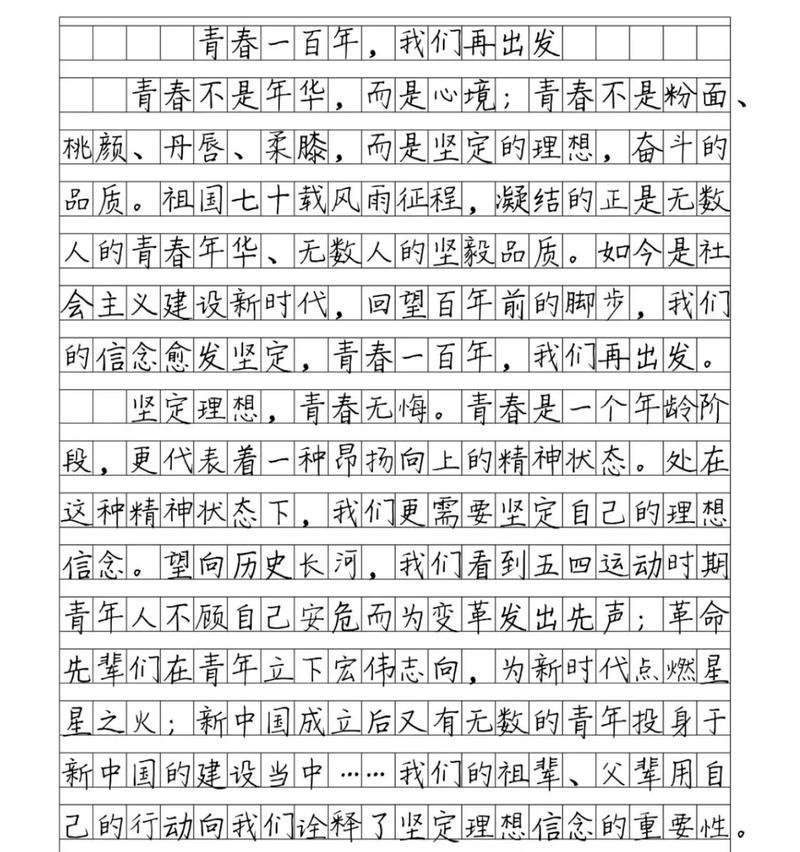 青春一百年，我们再出发
青春不是年华，而是心境；青春不是粉面、
桃颜、丹唇、柔膝，而是坚定的理想，奋斗的
品质。祖国七十载风雨征程，凝结的正是无数
人的青春年华、无数人的坚毅品质。如今是社
会主义建设新时代，回望百年前的脚步，我们
的信念愈发坚定，青春一百年，我们再出发。
坚定理想，青春无悔。青春是一个年龄阶
段，更代表着一种昂扬向上的精神状态。处在
这种精神状态下，我们更需要坚定自己的理想
信念。望向历史长河，我们看到五四运动时期
青年人不顾自己安危而为变革发出先声；革命
先辈们在青年立下宏伟志向，为新时代点燃星
星之火；新中国成立后又有无数的青年投身于
新中国的建设当中……我们的祖辈、父辈用自
己的行动向我们诠释了坚定理想信念的重要性。